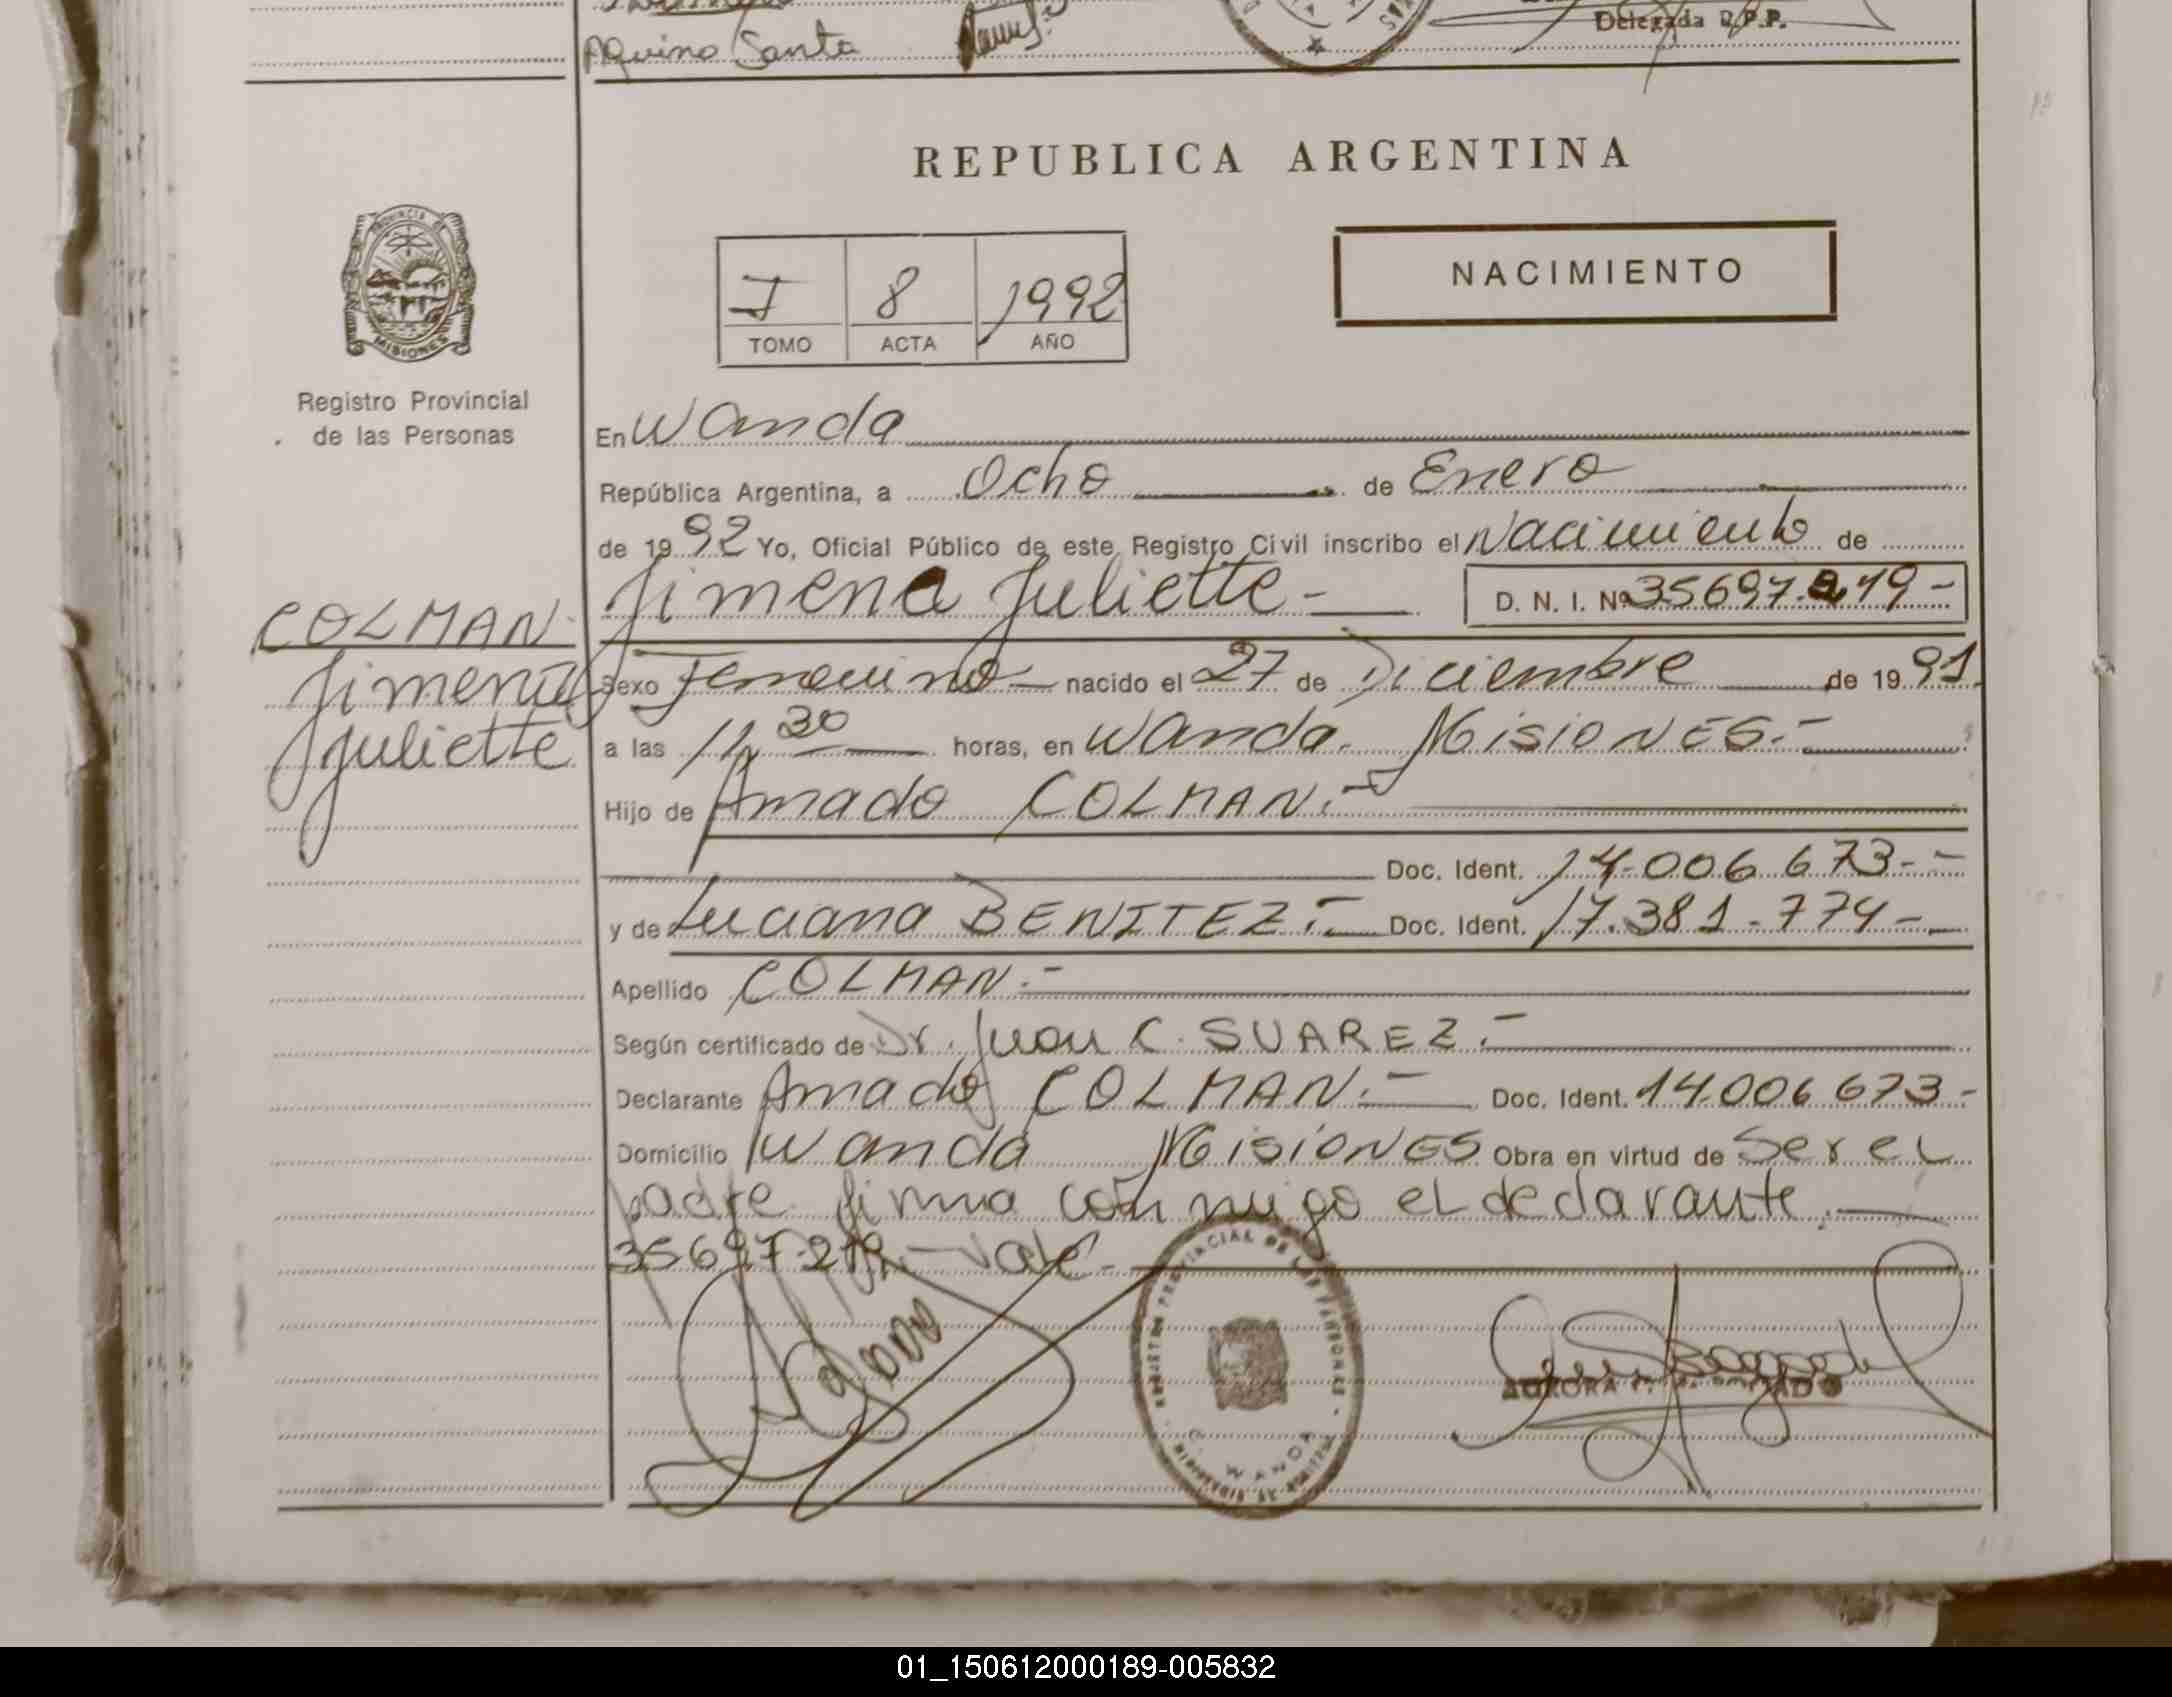 Aquino Santa
Delegada R.P.P.
REPUBLICA ARGENTINA
PROVINCIA DE
MISIONES
Registro Provincial
de las Personas
I 8 1992
TOMO ACTA AÑO
NACIMIENTO
En Wanda
República Argentina, a Ocho de Enero
de 1992 Yo, Oficial Público de este Registro Civil inscribo el Nacimiento de
Jimena Juliette - D. N. I. Nº 35697.219-
COLMAN
Jimena
Juliette
Sexo Femenino nacido el 27 de Diciembre de 1991.
a las 11 30 horas, en Wanda. MisioNES.-
Hijo de Amado COLMAN.-
Doc. Ident. 14.006.673.-
y de Luciana BENITEZ.- Doc. Ident. 17.381.774-
Apellido COLMAN.-
Según certificado de Dr. Juan C. SUAREZ.-
Declarante Amado COLMAN.- Doc. Ident. 14.006.673.-
Domicilio Wanda MisioNES Obra en virtud de Ser el
padre firma conmigo el declarante.-
35697-219.- Vale-
PROVINCIAL DE LAS PERSONAS
WANDA
AURORA
01_150612000189-005832